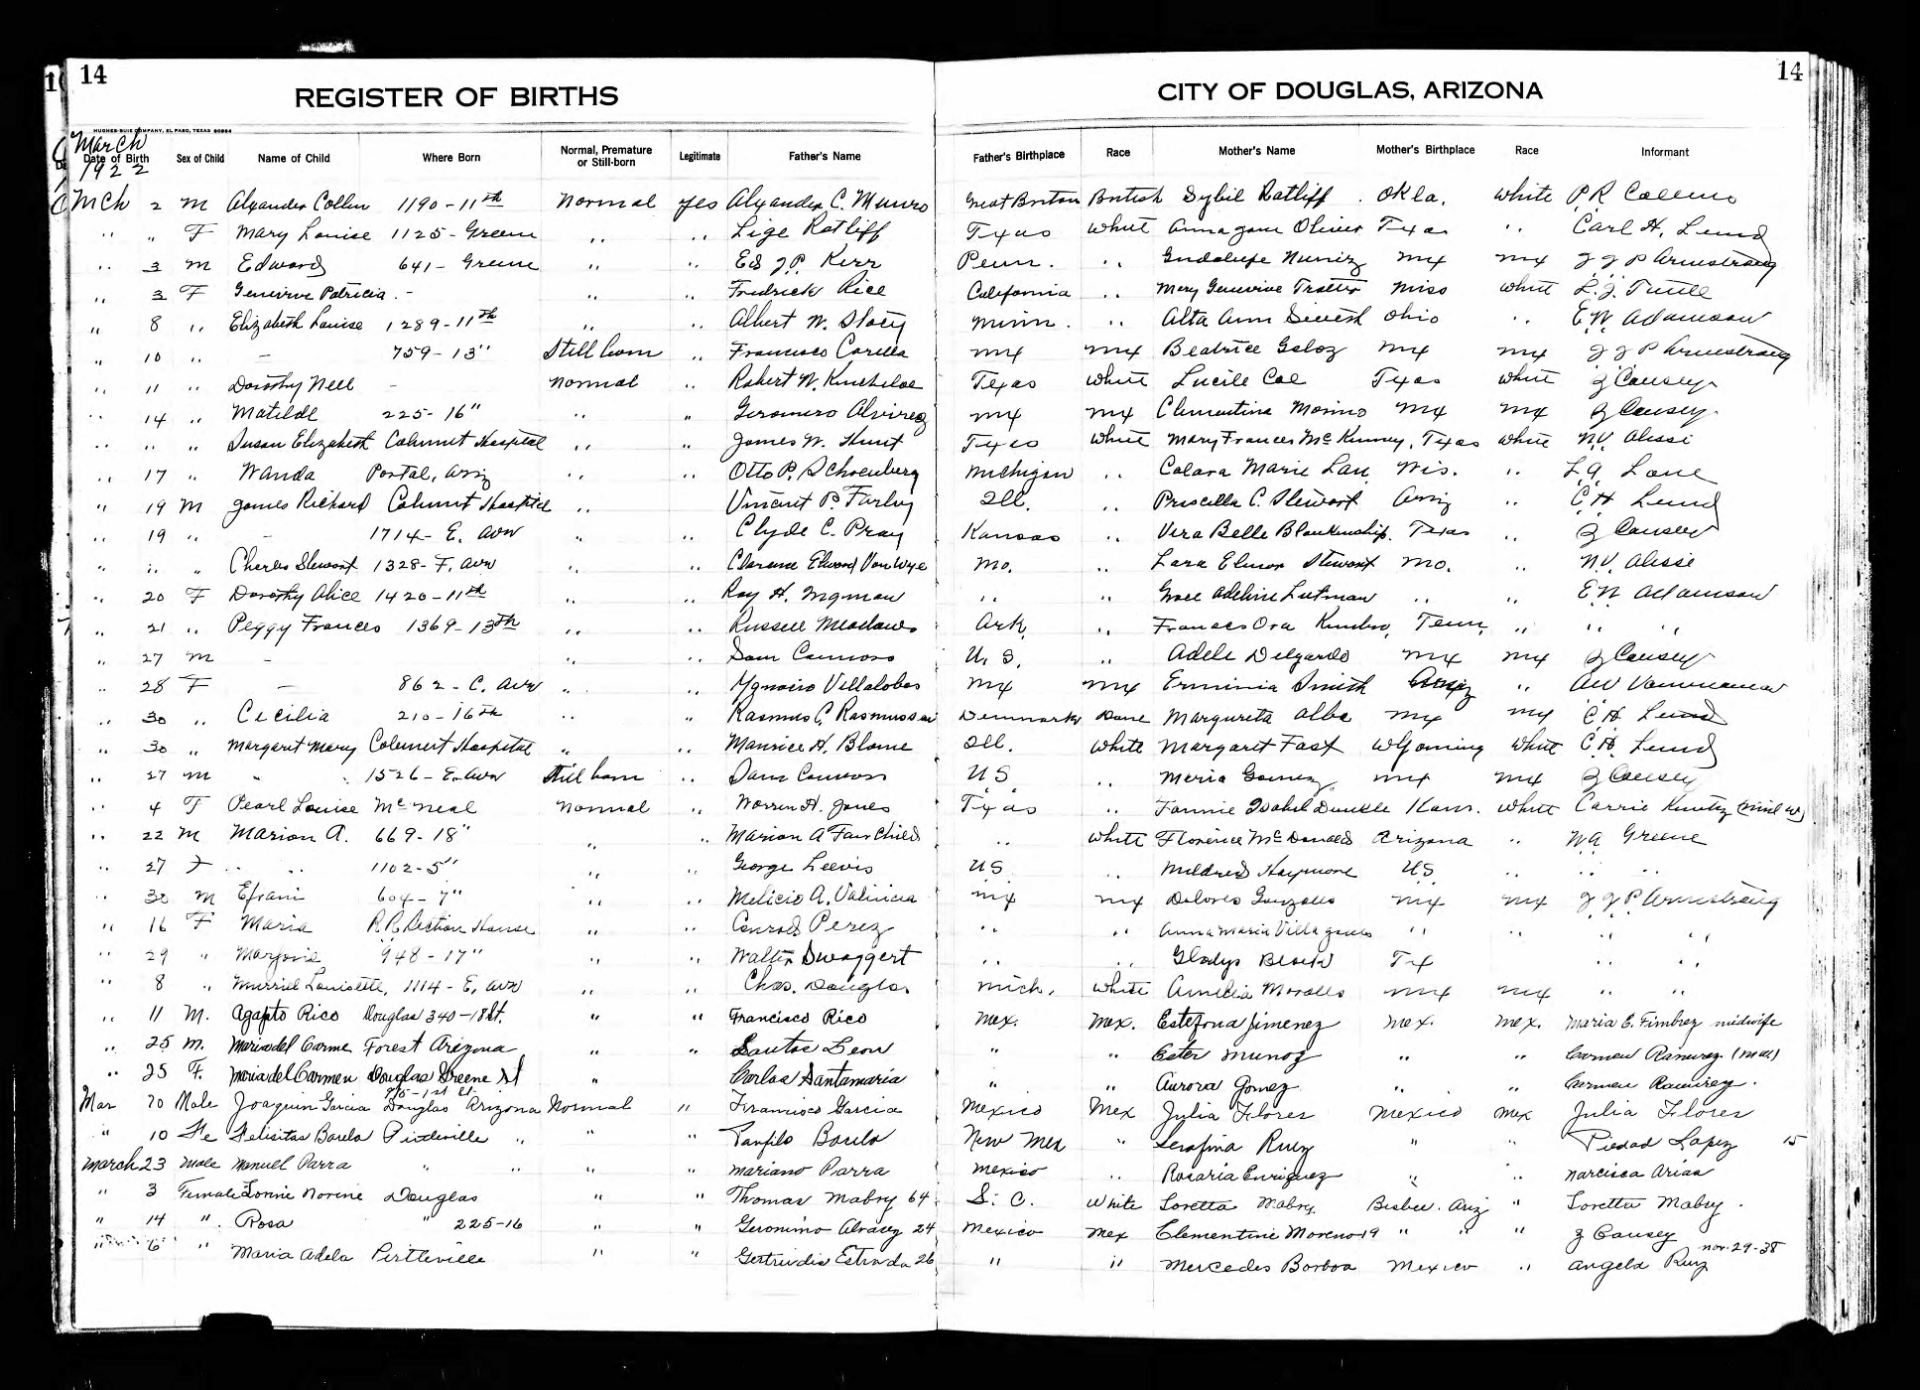 14
REGISTER OF BIRTHS
HUGHES-BUIE COMPANY, EL PASO, TEXAS
March
1922
Date of Birth Sex of Child Name of Child Where Born Normal, Premature or Still-born Legitimate Father's Name
14
CITY OF DOUGLAS, ARIZONA
Father's Birthplace Race Mother's Name Mother's Birthplace Race Informant
Mch 2 M Alexander Collin 1190-11th Normal yes Alexander C. Munro Great Britain British Sybil Ratliff Okla. White P.R. Collins
" " F Mary Louise 1125-Greene " " Lige Ratliff Texas White Anna Jane Oliver Texas " Carl H. Lund
" 3 M Edward 641-Greene " " Ed J.P. Kerr Penn. " Guadalupe Muniz Mex Mex J J P Armstrong
" 3 F Genevive Patricia - " " Fredrick Rice California " Mary Genevive Trotter Miss White L.J. Tuttle
" 8 " Elizabeth Louise 1289-11th " " Albert W. Stacy Minn. " Alta Ann Ohio " E.W. Adamson
" 10 " - 759-13" Still born " Francisco Mex Mex Beatrice Mex Mex J J P Armstrong
" 11 " Dorothy Nell - Normal " Robert W. Kincheloe Texas White Lucile Coe Texas White Z Causey
" 14 " Matilde 225-16" " " Geronimo Alvirez Mex Mex Clementina Morino Mex Mex Z Causey.
" " " Susan Elizabeth Calumet Hospital " " James W. Hunt Texas White Mary Frances McKinney, Texas White N.V. Alessi
" 17 " Wanda Portal, Ariz " " Otto P. Schoenberg Michigan " Marie Wis. " L.A. Lane
" 19 M James Richard Calumet Hospital " Vincent P. Farley Ill. " Priscilla C. Stewart Ariz " C H Lund
" 19 " - 1714-E. Ave " " Clyde C. Pray Kansas " Vera Belle Blankenship. Texas " Z Causey
" " " Charles Stewart 1328-F. Ave " " Clarence Edward Van Wye Mo. " Lara Elinor Stewart Mo. " N.V. Alessi
" 20 F Dorothy Alice 1420-11th " " Roy H. Ingman " " Grace Adeline Lutman " " E N Adamson
" 21 " Peggy Frances 1369-13th " " Russell Meadows Ark. " Frances Ora Tenn. " " "
" 27 M - " " Sam U.S. " Adele Delgardo Mex Mex Z Causey
" 28 F - 862-C. Ave " " Ygnacio Villalobos Mex Mex Erminia Smith Ariz "
" 30 " Cecilia 210-16th " " Rasmus C. Rasmussen Denmark Dane Margureta Alba Mex Mex C H Lund
" 30 " Margaret Mary Calumet Hospital " " Maurice H. Blome Ill. White Margaret Fast Wyoming White C H Lund
" 27 M " 1526-E. Ave Still born " U S " Maria Gomez Mex Mex Z Causey
" 4 F Pearl Louise McNeal Normal " Warren H. Jones Texas " Fannie Isabel Dunkle Kans. White Carrie
" 22 M Marion A. 669-18" " " Marion A Fairchild " White Florence McDonald Arizona " N A Greene
" 27 F " " 1102-5" " " George Leevis U S " Mildred Haymore U S " " "
" 30 M Efrain 604-7" " " Melicio A. Valincia Mex Mex Dolores Gonzales Mex Mex J J P Armstrong
" 16 F Maria R.R. Section House " " Conrad Perez " " Anna Maria " " " "
" 29 " Marjorie 948-17" " " Walter Swaggert " " Gladys Block Tex " "
" 8 " Murriel Louisette, 1114-E. Ave " " Chas. Douglas Mich. White Amelia Moralls Mex Mex " "
" 11 M. Agapto Rico Douglas 340-18St. " " Francisco Rico Mex. Mex. Estefona Jimenez Mex. Mex. Maria E. Fimbrez midwife
" 25 M. Maria del Carme Forest Arizona " " Santos Leon " " Ester Munoz " " Carmen Ramirez
" 25 F. Maria del Carmen Douglas Greene St " Carlos Santamaria " " Aurora Gomez " " Carmen Ramirez.
Mar 10 Male Joaquin Garcia Douglas Arizona Normal " Francisco Garcia Mexico Mex Julia Flores Mexico Mex Julia Flores
" 10 Fe Felisitas Borelo Pirtleville " " " Panfilo Borelo New Mex " Serafina Ruiz " " Piedad Lopez 15
March 23 Male Manuel Parra " " " " Mariano Parra Mexico " Rosaria Enriquez " " Narcisca Arias
" 3 Female Lonnie Norine Douglas " " Thomas Mabry 64 S. C. White Loretta Mabry Bisbee. Ariz " Loretta Mabry.
" 14 " Rosa " 225-16 " " Geronimo Alvarez 24 Mexico Mex Clementine Moreno 19 " " " Z Causey
" 6 " Maria Adela Pirtleville " " Gertrudis Estrada 26 " " Mercedes Borboa Mexico " Angela Ruiz Nov-29-38